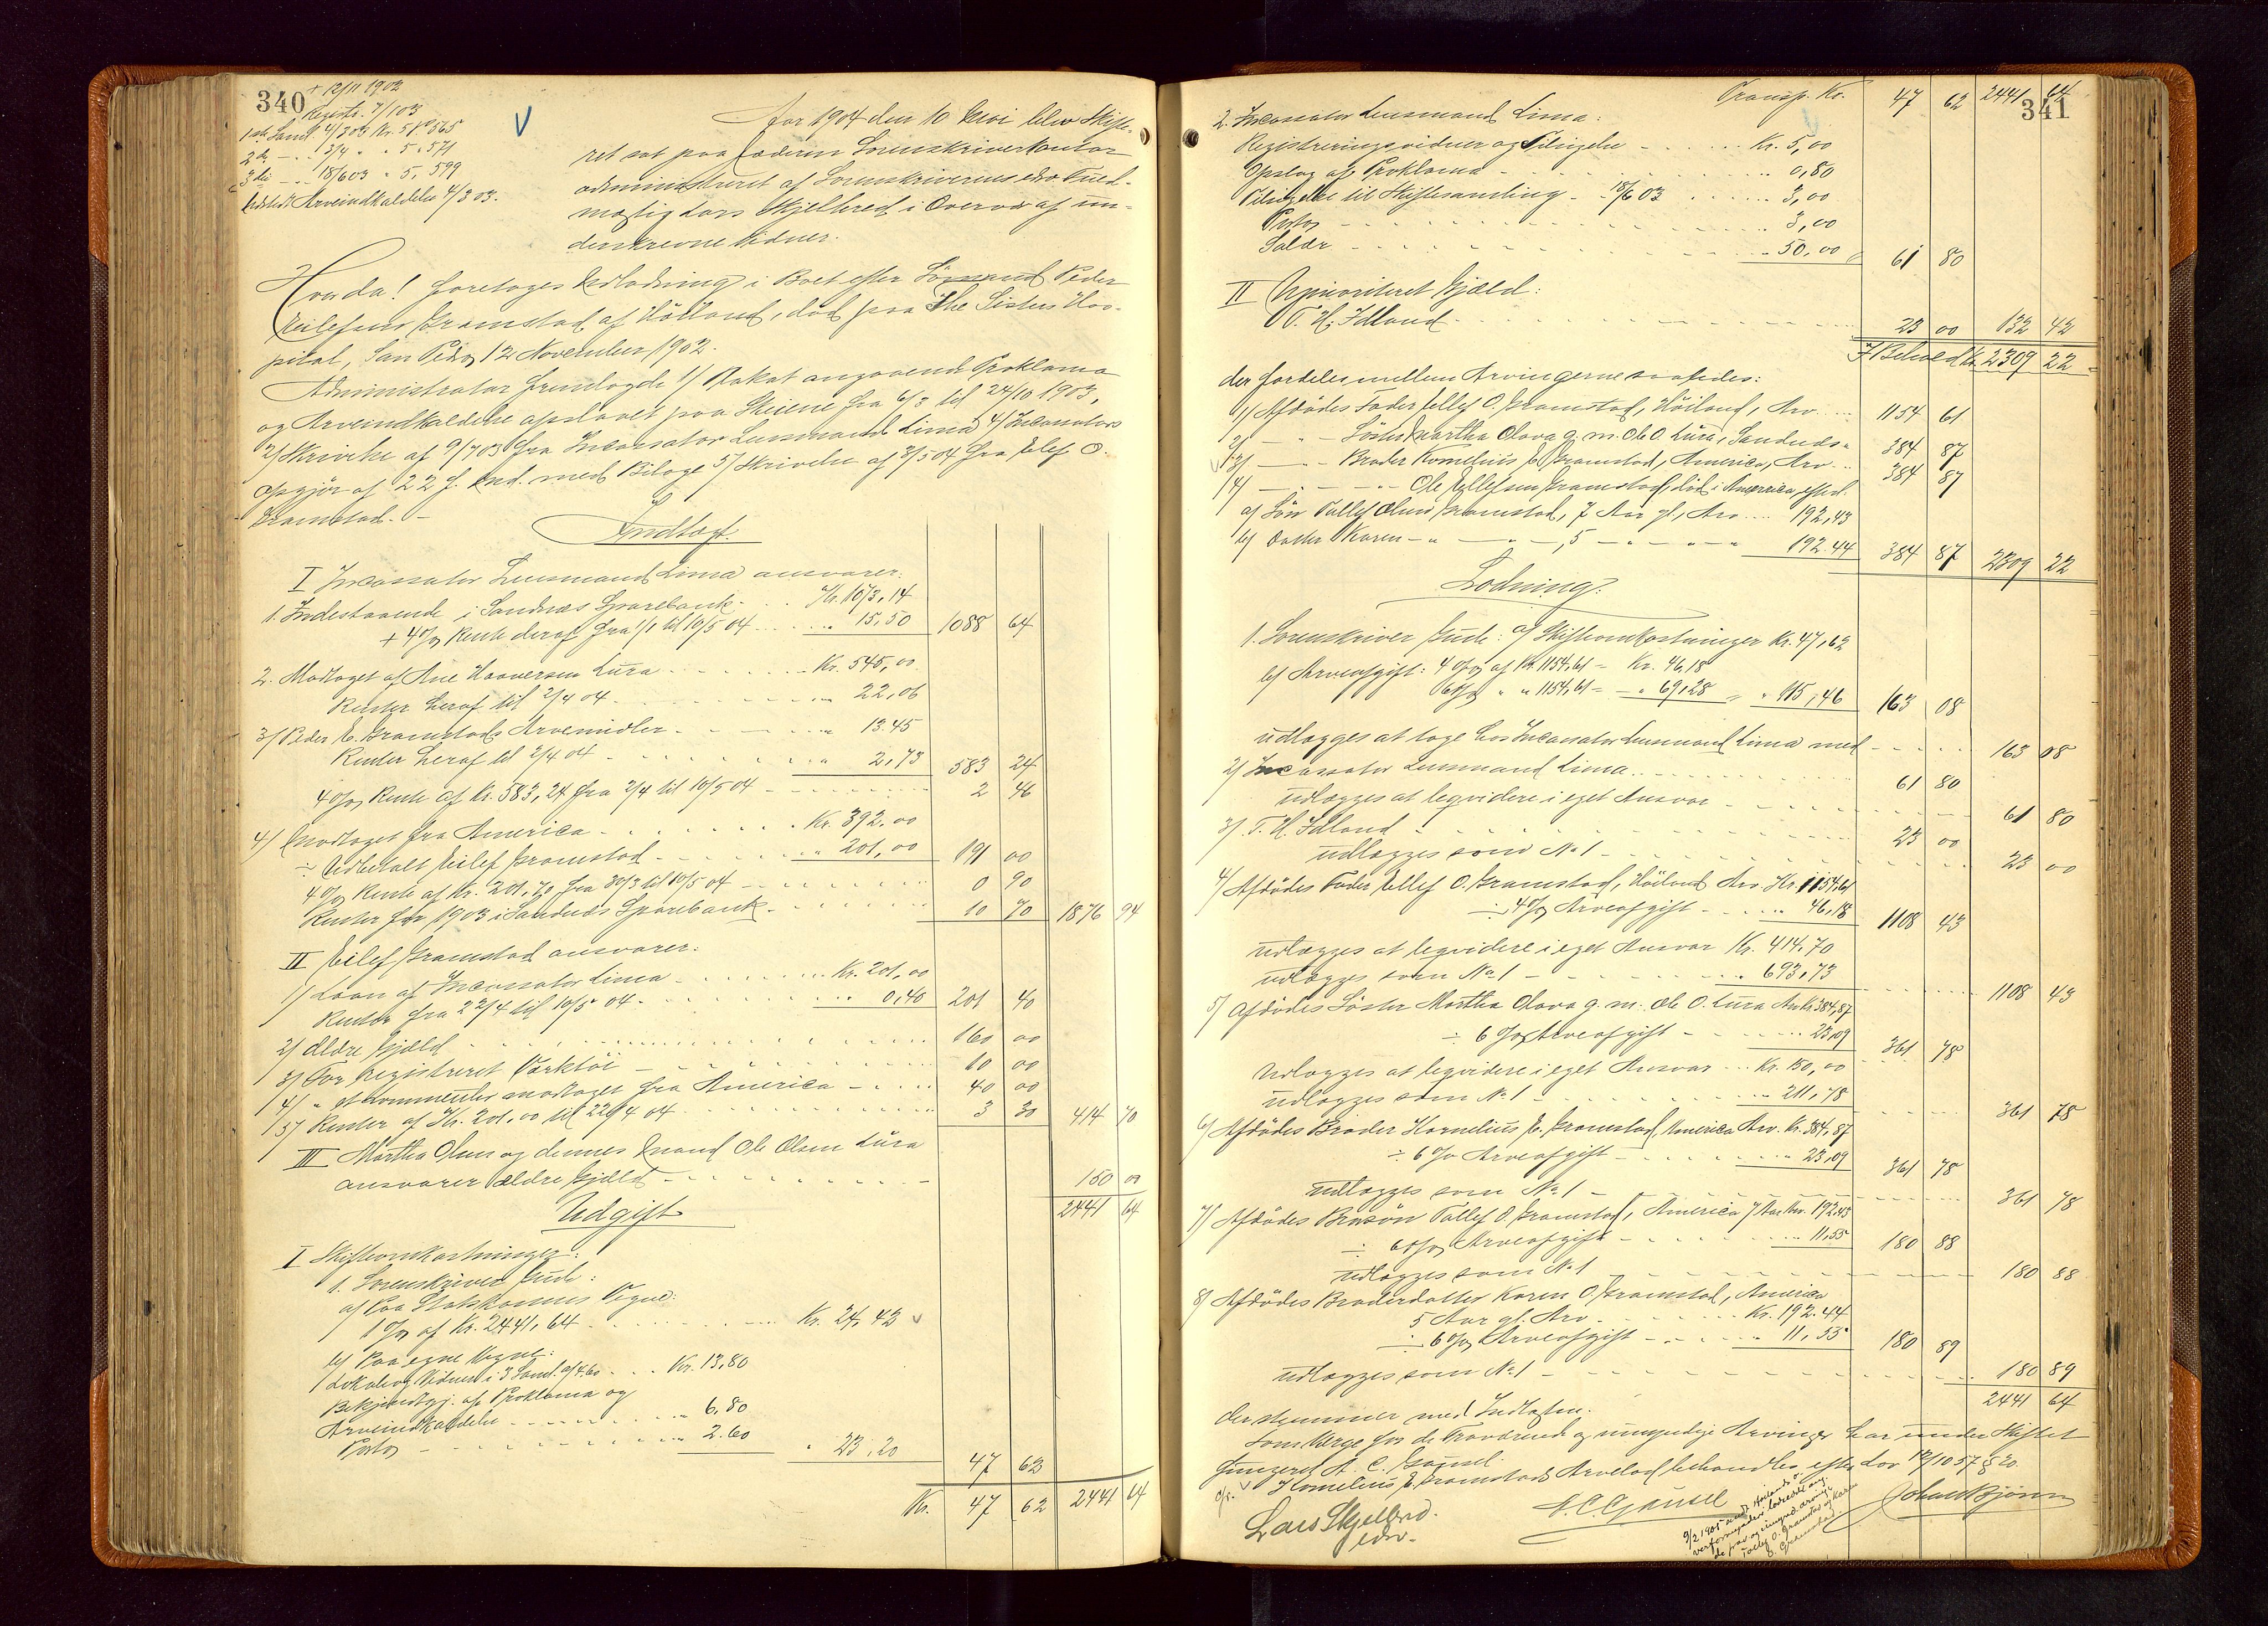 340
+ 12/11 1902
Registr. 7/1 03
1ste Saml. 4/3 03 Kr. 5 No 565
2 d. — " 3/4 " " 5 " 571
3 die — " 18/6 03 " 5, 599
Udstedt Arveindkaldelse 4/3 03.
V
Aar 1904 den 10 Mai blev Skifte-
ret sat paa Jæderen Sorenskriverkontor
administreret af Sorenskriverens edsv. Fuld-
mægtig Lars Skjelbred i Overvær af un-
derskrevne Vidner.
Hvorda! foretoges Udlodning i Boet efter Sømand Peder
Eilefsen Gramstad af Höiland, död paa The Sisters Hos-
pital, San Pedro 12 November 1902.
Administrator fremlagde 1/ Plakat angaaende Proklama
og Arveindkaldelse opslaaet paa Skiene fra 6/3 til 24/10 1903,
2/ Skrivelse af 9/7 03 fra Incassator Lensmand Lima 4/ Incassators
Opgjör af 22 f. Md. med Bilage 5/ Skrivelse af 3/5 04 fra Eilef O.
Gramstad. -
Indtægt.
I Incassator Lensmand Lima ansvarer:
1. Indestaaende i Sandnæs Sparebank - Kr. 1073,14
+ 4% Rente deraf fra 1/1 til 10/5 04 " 15,50 1088 64
2. Modtaget af Ane Haaversen Lura Kr. 545,00
Renter heraf til 2/4 04 " 22,06
3/ Peder E. Gramstads Arvemidler " 13.45
Renter heraf til 2/4 04 " 2,73 583 24
4% Rente af Kr. 583,24 fra 2/4 til 10/5 04 2 46
4/ Modtaget fra America Kr. 392.00
÷ Udbetalt Eilef Gramstad " 201,00 191 00
4% Rente af Kr. 201,70 fra 30/3 til 10/5 04 0 90
Renter for 1903 i Sandnæs Sparebank 10 70 1876 94
II Eilef Gramstad ansvarer:
1/ Laan af Incassator Lima Kr. 201,00
Renter fra 22/4 til 10/5 04 " 0,40 201 40
2/ Ældre Gjæld 160 00
3/ For Registreret Værktöi 10 00
4/ " et Lommeuhr modtaget fra America 40 00
5/ Renter af Kr. 201,00 til 22/4 04 3 30 414 70
III Martha Olsen og dennes Mand Ole Olsen Lura
ansvarer ældre Gjæld 150 00
2441 64
Udgift
I Skifteomkostninger:
1. Sorenskriver Gude:
a/ Paa Statskassens Vegne:
1% af Kr. 2441,64 Kr. 24,42 v
b/ Paa egne Vegne:
Lokale og Vidner i 3 Saml. a/ 4.60 Kr. 13,80
Bekjendtgj. af Proklama og
Arveindkaldelse " 6,80
Porto " 2.60 " 23,20 47 62
Kr. 47 62 2441 64
341
Transp. Kr. 47 62 2441 64
2. Incassator Lensmand Lima:
Registreringsvidner og Tilsigelse Kr. 5,00
Opslag af Proklama " 0,80
Tilsigelse til Skiftesamling 18/6 03 " 3,00
Porto " 3,00
Salær " 50,00 61 80
II Uprioriteret Gjæld:
T. H. Idland 23 00 132 42
I Behold Kr. 2309 22
der fordeles mellem Arvingerne saaledes:
1/ Afdödes Fader Eilef O. Gramstad, Höiland, Arv 1154 61
2/ — " — Söster Martha Olava g. m. Ole O. Lura, Sandnæs " 384 87
v 3/ — " — Broder Kornelius E. Gramstad, America, Arv 384 87
4/ — " — " — Ole Eilefsen Gramstad, död i America, efterl.
a/ Sön Tollef Olsen Gramstad, 7 Aar gl., Arv 192,43
b/ Datter Karen — " — " —, 5 — " — " — " 192.44 384 87 2309 22
Lodning:
1. Sorenskriver Gude: a/ Skifteomkostninger Kr. 47,62
b/ Arveafgift: 4% af Kr. 1154,61 = Kr. 46,18
6% " " 1154,61 = " 69,28 = " 115,46 163 08
udlægges at tage hos Incassator Lensmand Lima med 163 08
2/ Incassator Lensmand Lima 61 80
udlægges at leqvidere i eget Ansvar 61 80
3/ T. H. Idland 23 00
udlægges som No 1 23 00
4/ Afdödes Fader Eilef O. Gramstad, Höiland Arv Kr. 1154,61
÷ 4% Arveafgift " 46,18 1108 43
udlægges at leqvidere i eget Ansvar Kr. 414.70
udlægges som No 1 " 693,73 1108 43
5/ Afdödes Söster Martha Olava g. m. Ole O. Lura Arv Kr. 384,87
÷ 6% Arveafgift " 23,09 361 78
Udlægges at leqvidere i eget Ansvar Kr. 150,00
udlægges som No 1 " 211,78 361 78
6/ Afdödes Broder Kornelius E. Gramstad, America Arv. Kr. 384,87
÷ 6% Arveafgift " 23,09 361 78
udlægges som No 1 361 78
7/ Afdödes Brorsön Tollef O. Gramstad, America 7 Aar Arv. 192.43
÷ 6% Arveafgift " 11,55 180 88
udlægges som No 1 180 88
8/ Afdödes Broderdatter Karen O. Gramstad, America
5 Aar gl. Arv Kr. 192.44
÷ 6% Arveafgift " 11,55 180 89
udlægges som No 1 180 89
2441 64
der stemmer med Indtægten.
Som Værge for de fraværende og umyndige Arvinger har under Skiftet
fungeret A. C. Gausel.
Kornelius E. Gramstads Arvelod behandles efter Lov 12/10 57 § 20.
Lars Skjelbred.
edsv.
A. C. Gausel
9/2 1905